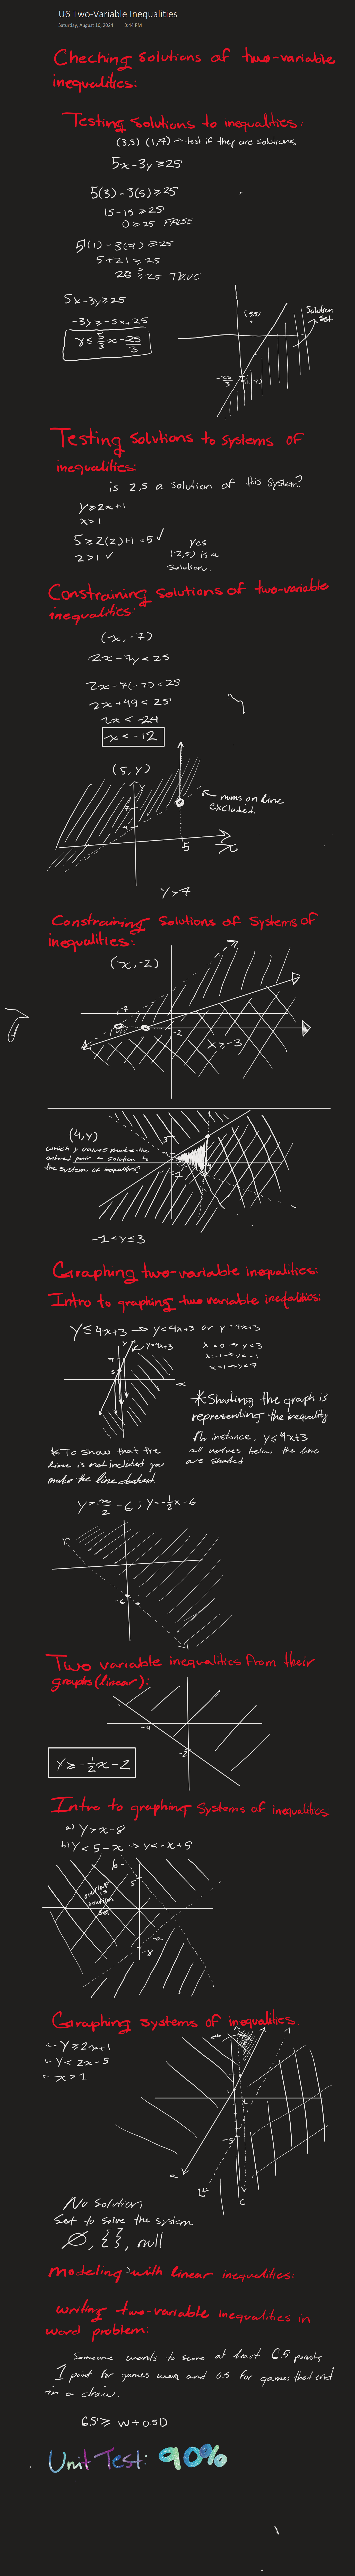 U6 Two-Variable Inequalities
Saturday, August 10, 2024 3:44 PM
Checking solutions of two-variable
inequalities:
Testing solutions to inequalities:
(3,5) (1,-7) → test if they are solutions
5x-3y ≥ 25
5(3) - 3(5) ≥ 25
15 - 15 ≥ 25
0 ≥ 25 FALSE
5(1) - 3(-7) ≥ 25
5 + 21 ≥ 25
26 ≥ 25 TRUE
5x-3y ≥ 25
-3y ≥ -5x+25
y ≤ 5/3 x - 25/3
(3,5)
Solution
set
-25/3
(1,-7)
Testing solutions to systems of
inequalities:
is 2,5 a solution of this system?
y ≥ 2x+1
x > 1
5 ≥ 2(2)+1 = 5 ✓
2 > 1 ✓
yes
(2,5) is a
solution.
Constraining solutions of two-variable
inequalities:
(x, -7)
2x - 7y < 25
2x - 7(-7) < 25
2x + 49 < 25
2x < -24
x < -12
(5, y)
nums on line
excluded.
5
x
y > 7
Constraining Solutions of Systems of
inequalities:
(x, -2)
-2
x ≥ -3
(4, y)
which y values make the
ordered pair a solution to
the system of inequalities?
3
-1
-1 < y ≤ 3
Graphing two-variable inequalities:
Intro to graphing two variable inequalities:
y ≤ 4x+3 → y < 4x+3 or y = 4x+3
y=4x+3
x = 0 → y < 3
x = -1 → y < -1
x = 1 → y < 7
x
* Shading the graph is
representing the inequality
for instance, y ≤ 4x+3
all values below the line
are shaded
* To show that the
line is not included you
make the line dashed.
y > -x/2 - 6 ; y = -1/2 x - 6
-6
Two variable inequalities from their
graphs (linear):
-4
-2
y ≥ -1/2 x - 2
Intro to graphing Systems of inequalities:
a) y > x - 8
b) y < 5 - x → y < -x + 5
b
5
overlap
is
solution
set
a
-8
Graphing systems of inequalities.
a = y ≥ 2x+1
b = y < 2x - 5
c = x > 1
1
-5
a
b
c
No solution
Set to solve the system
∅, { }, null
modeling with linear inequalities:
writing two-variable inequalities in
word problem:
Someone wants to score at least 6.5 points,
1 point for games won and 0.5 for games that end
in a draw.
6.5 ≥ W + 0.5D
Unit Test: 90%